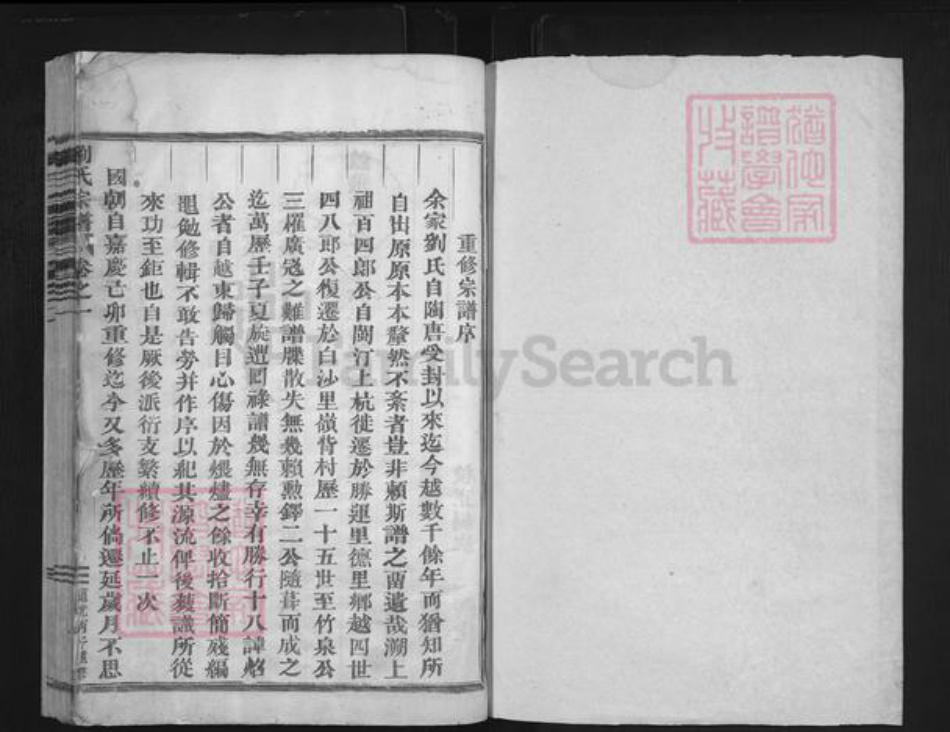 猶他家
譜學會
收藏
重修宗譜序
余家劉氏自陶唐受封以來迄今越數千餘年而猶知所
自出原原本本犛然不紊者豈非賴斯譜之留遺哉溯上
祖百四郎公自閩汀上杭徙遷於勝運里德里鄉越四世
四八郎公復遷於白沙里嶺背村歷一十五世至竹泉公
三權廣寇之難譜牒散失無幾賴勲鐸二公隨葺而成之
迄萬歷壬子夏旋遭囘祿譜幾無存幸有勝行十八諱焰
公者自越東歸觸目心傷因於煨燼之餘收拾斷簡殘編
黽勉修輯不敢告勞并作序以紀其源流俾後裔識所從
來功至鉅也自是厥後派衍支繁續修不止一次
國朝自嘉慶己卯重修迄今又多歷年所倘遷延歲月不思
劉氏宗譜 卷之一
FamilySearch